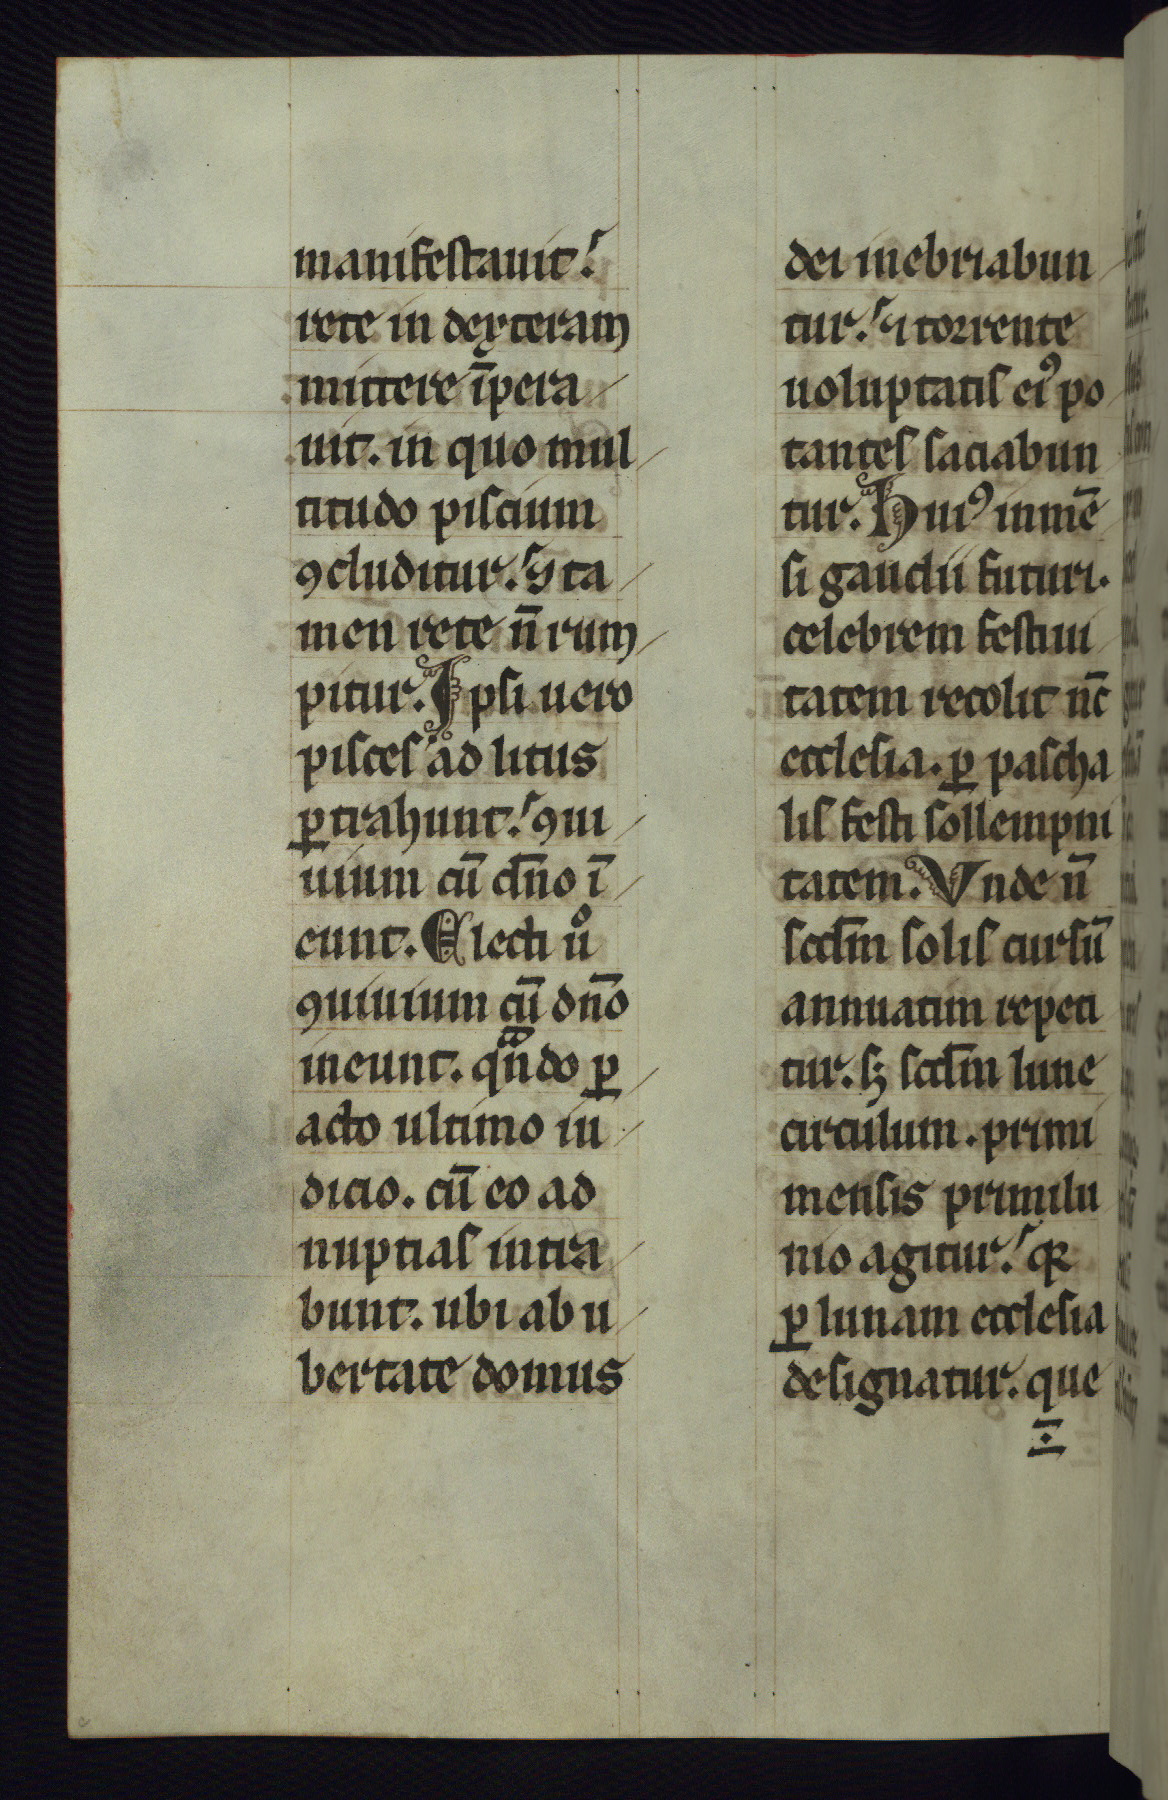 manifestauit.
rete in dexteram
mittere īpera
uit. in quo mul
titudo piscium
ꝯcluditur. ⁊ ta
men rete n̄ rum
pitur. Ipsi uero
pisces ad litus
ꝑtrahunt. ꝯui
uium cū dn̄o ī
eunt. Electi uͦ
ꝯuiuium cū dn̄o
ineunt. qn̄do ꝑ
acto ultimo iu
dicio. cū eo ad
nuptias intra
bunt. ubi ab u
bertate domus
dei inebriabun
tur. ⁊ torrente
uoluptatis eiꝰ po
tantes saciabun
tur. Huiꝰ inmē
si gaudii futuri.
celebrem festiui
tatem recolit nc̄
ecclesia. ꝑ pascha
lis festi sollempni
tatem. Vnde n̄
scd̄m solis cursū
annuatim repeti
tur. sꝫ scd̄m lune
circulum. primi
mensis primilu
nio agitur. qꝛ
ꝑ lunam ecclesia
designatur. que